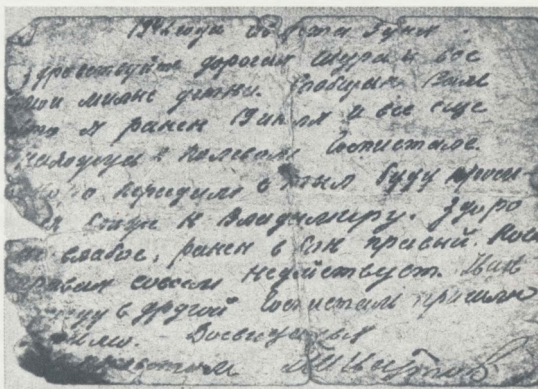 1942 года августа
дравствуйте дорогая Шура и все
мои милые детки. Сообщаю Вам
что я ранен 19 июля и все еще
нахожусь в полевом госпитале.
о переезде в тыл буду проси-
ся ближе к Владимиру. Здоро
вье слабое, ранен в бок правый. Нога
правая совсем недействует. Как
перейду в другой госпиталь пришлю
письмо. Досвиданья
с приветом